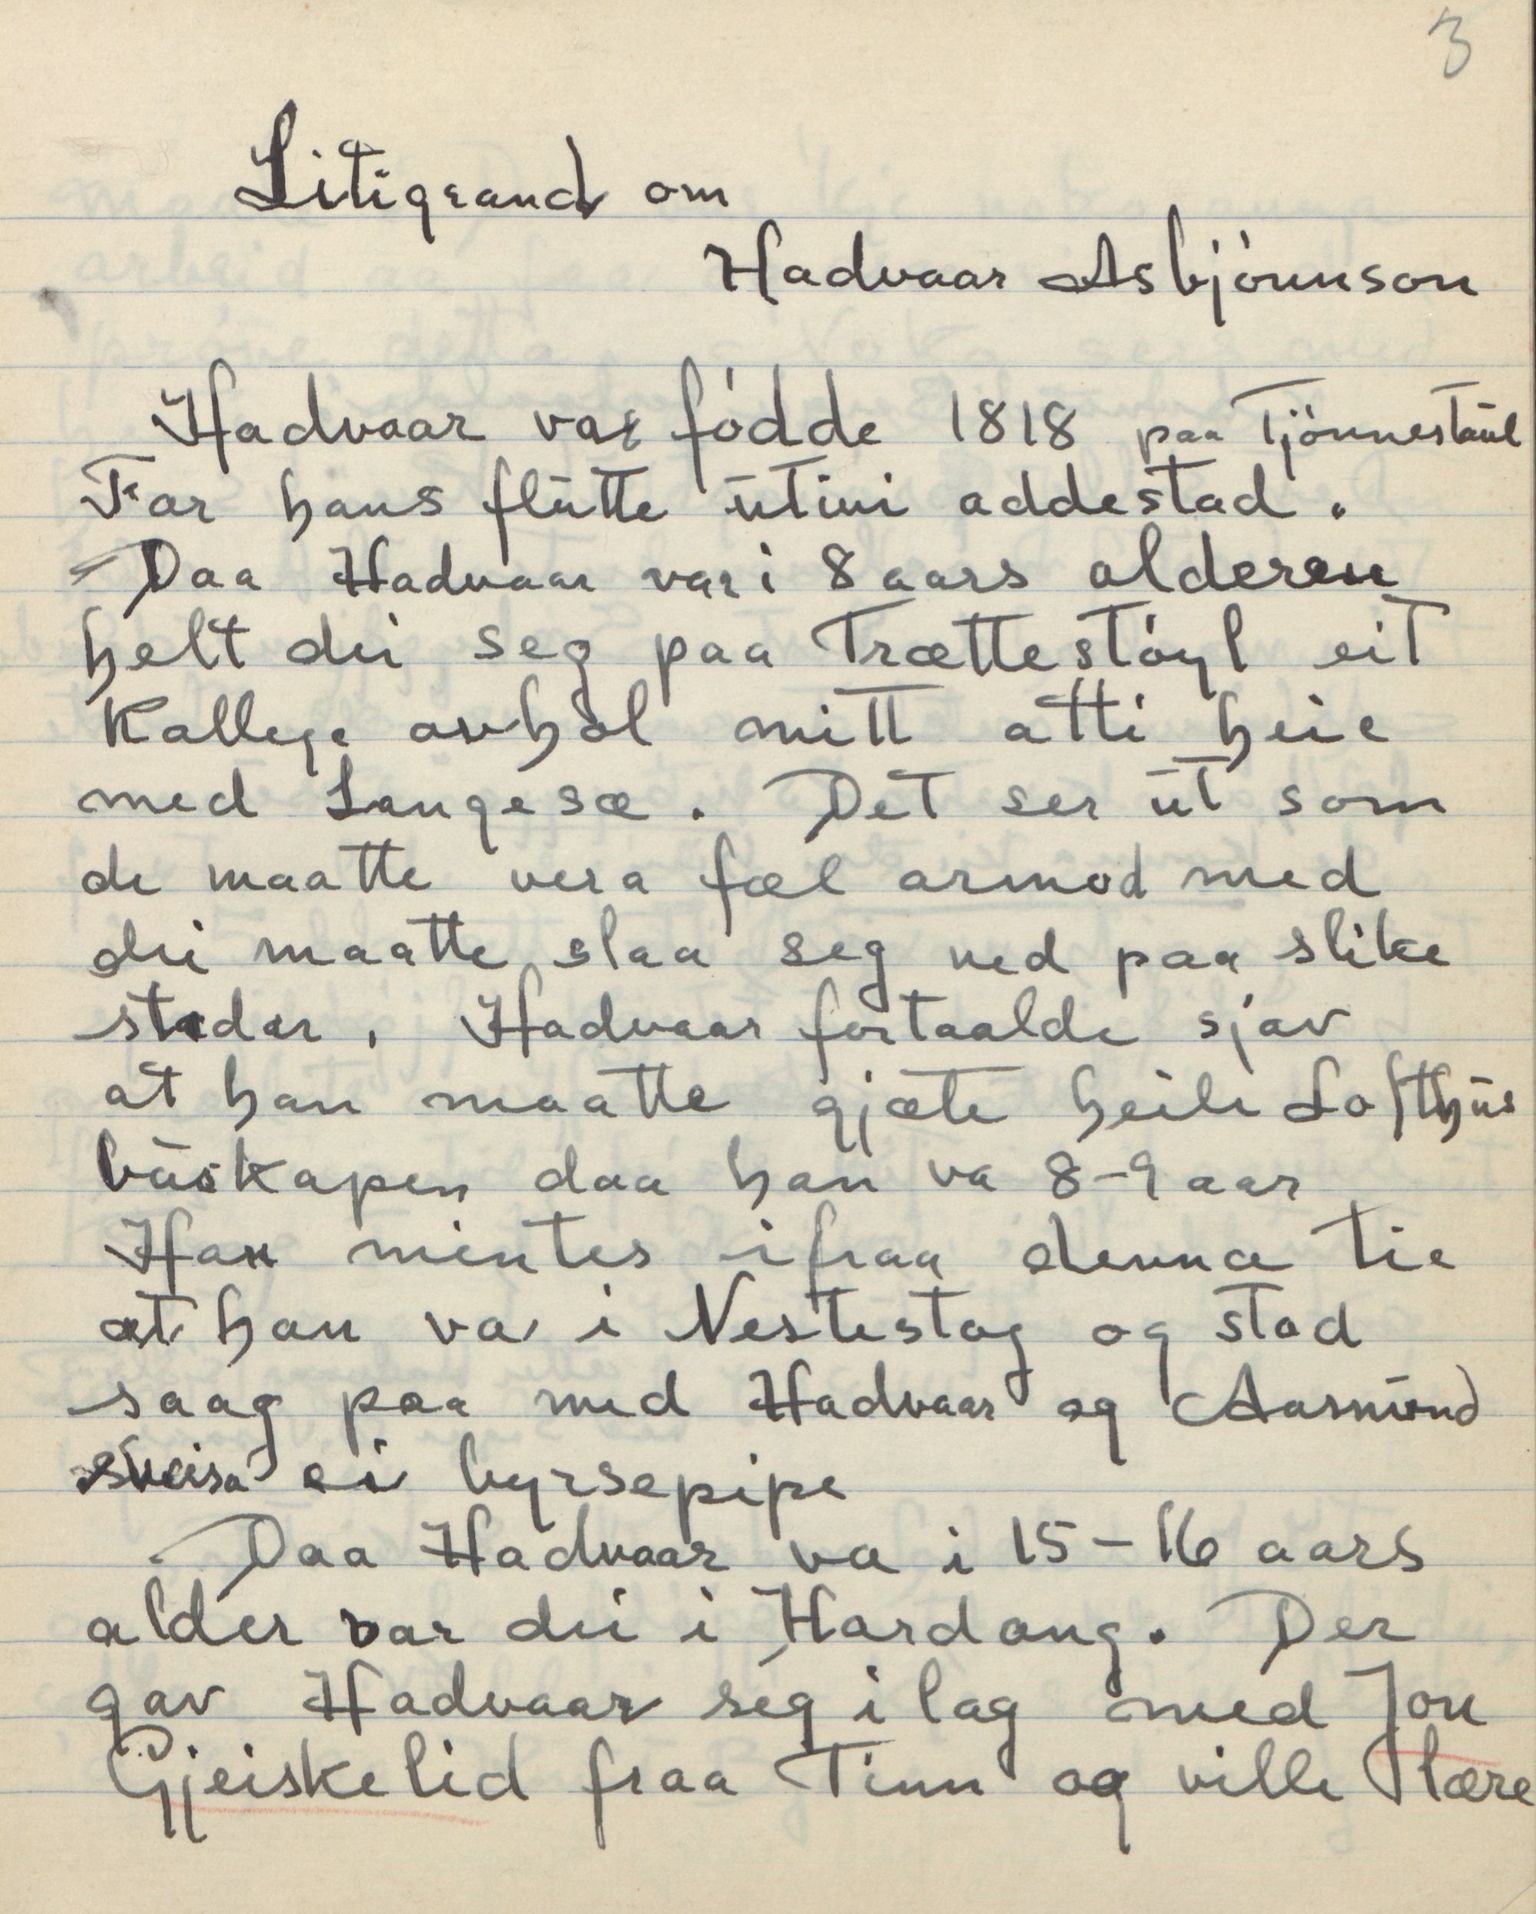 3
Litigrand om
Hadvaar Asbjönnson
Hadvaar var födde 1818 paa Tjönnestaul
Far hans flütte ütini addestad.
Daa Hadvaar var i 8 aars alderen
helt dei seg paa Trættestöyl eit
Kallege avhol mitt atti heie
med Langesæ. Det ser üt som
de maatte vera fæl armod med
dei maatte slaa seg ned paa slike
stader, Hadvaar fortaalde sjav
at han maatte gjæte heile Lofthüs
büskapen daa han va 8-9 aar
Han mintes ifraa denna tie
at han va i Nestestog og stod
saag paa med Hadvaar og Aasmünd
sveisa ei byrsepipe
Daa Hadvaar va i 15-16 aars
alder var dei i Hardang. Der
gav Hadvaar seg i lag med Jon
Gjeiskelid fraa Tinn og ville lære